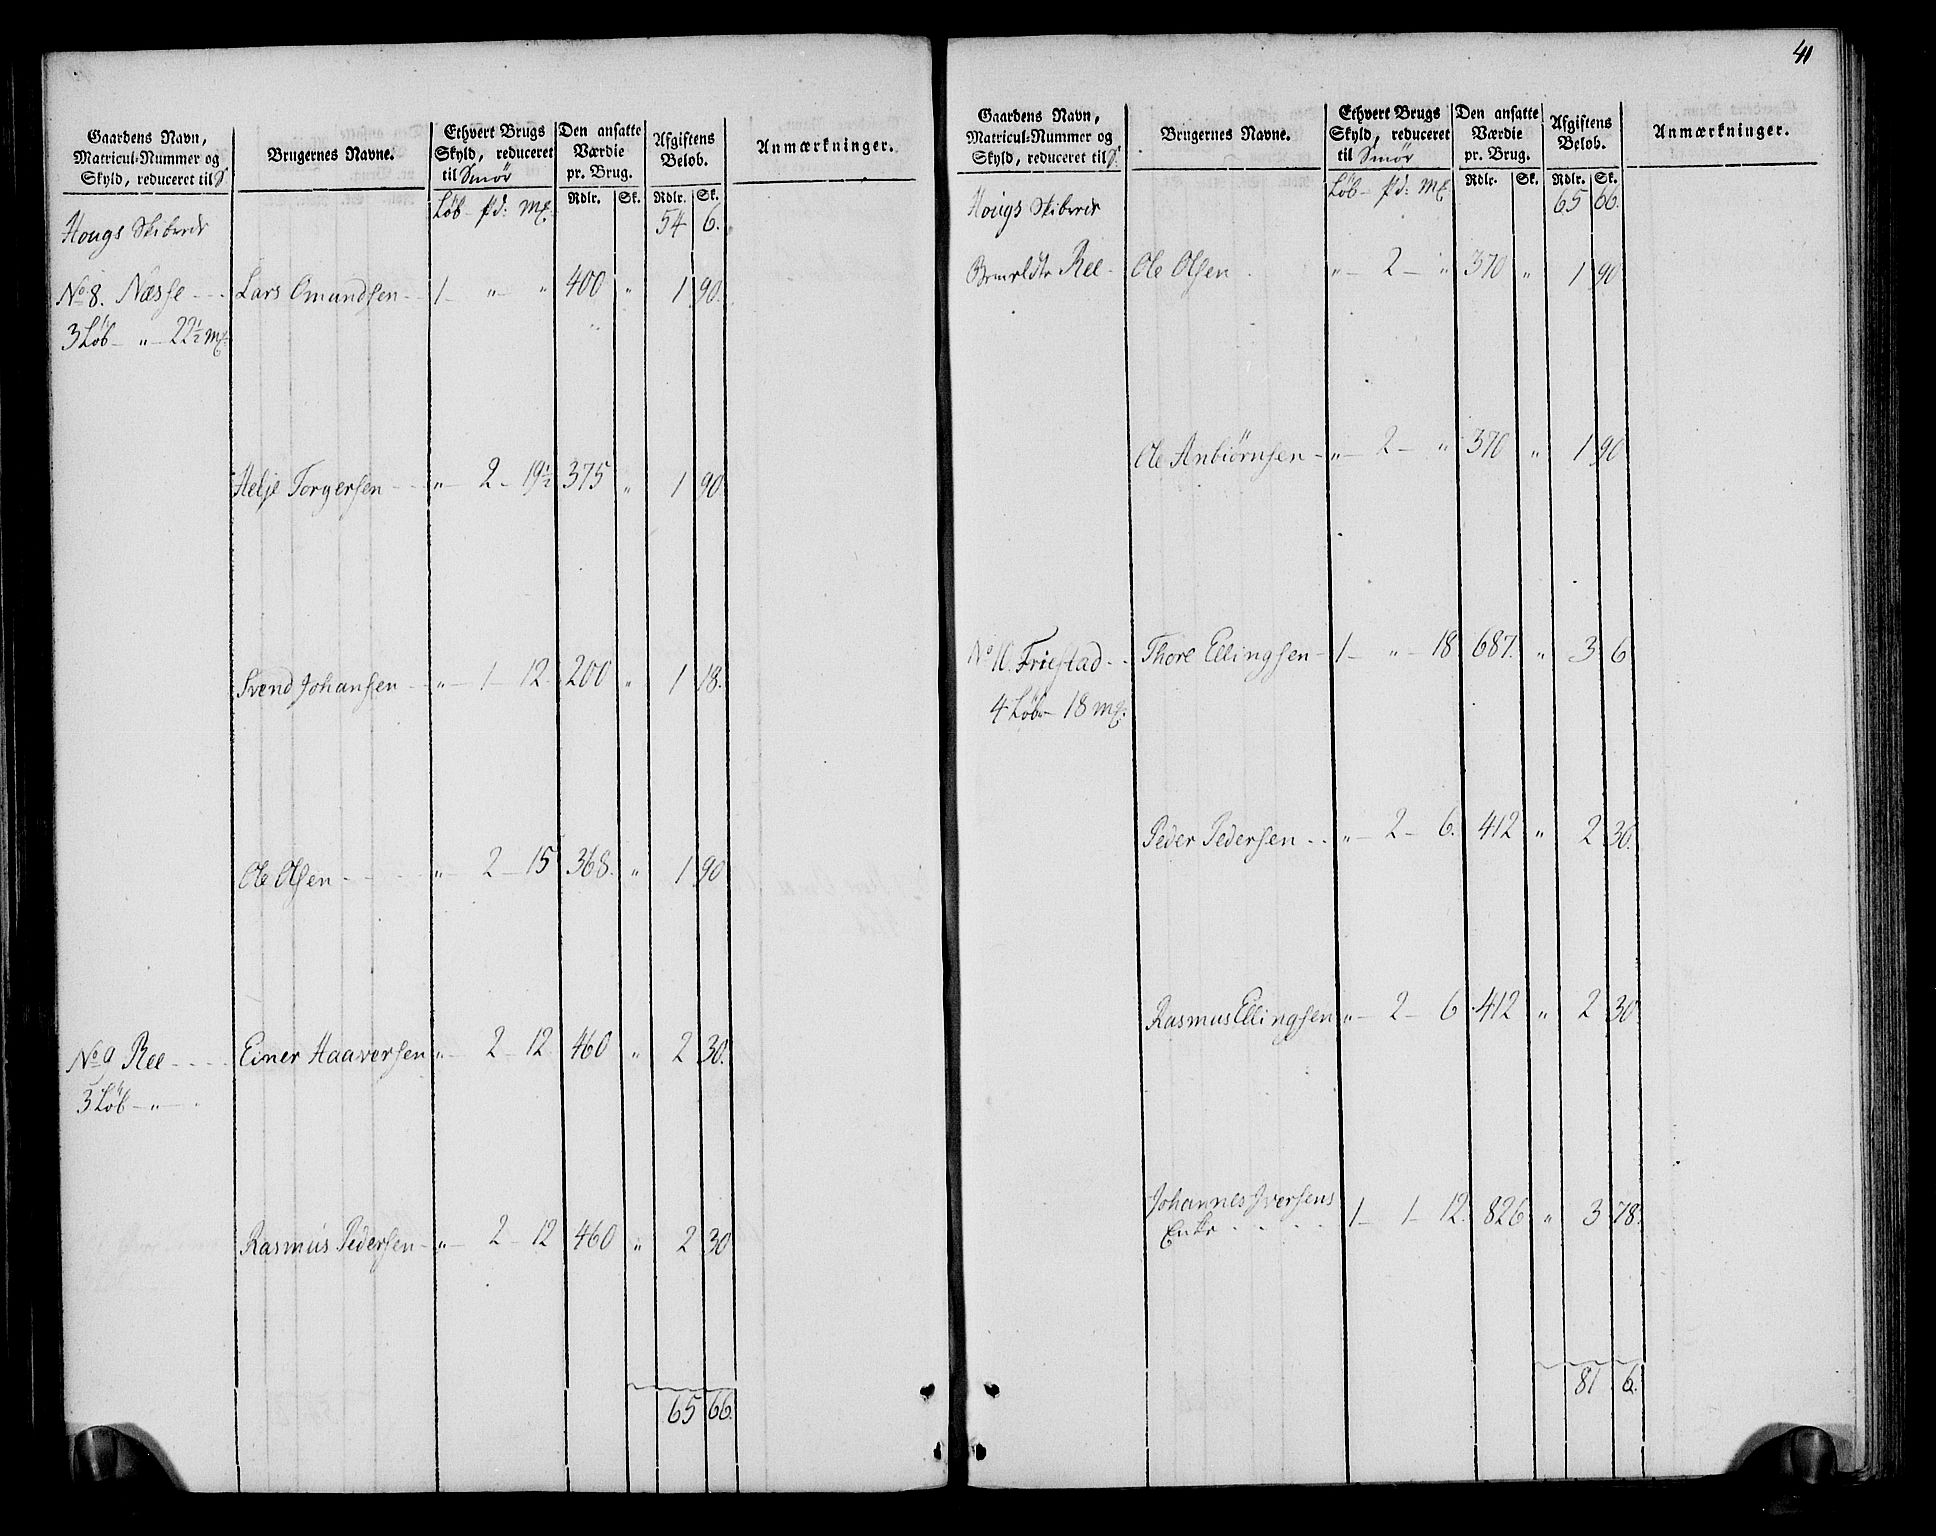 Gaardens Navn,
Matricul-Nummer og
Skyld, reduceret til S
Brugernes Navne.
Ethvert Brugs
Skyld, reduceret
til Smör
Den ansatte
Værdie
pr. Brug.
Afgiftens
Belob.
Anmærkninger.
Löb - pd: M𝔵. Rdlr. Sk. Rdlr. Sk.
Hougs Skibrede 54 6.
No 8. Næsse - - - Lars Omundsen - - 1 - „ - „ 400 „ 1 90.
3 Löb - „ - 22½ M𝔵.
Helje Torgersen - - „ - 2 - 19½ 375 „ 1 90
Svend Johansen - „ - 1 - 12. 200 „ 1 18.
Ole Olsen - - - „ - 2 - 15 368. „ 1 90
No 9 Ree - - - - Einer Haaversen „ - 2 - 12. 460 „ 2 30.
3 Löb - „ -
Rasmus Pedersen - „ - 2 - 12 460 „ 2 30
65 66.
41
Gaardens Navn,
Matricul-Nummer og
Skyld, reduceret til S
Brugernes Navne.
Ethvert Brugs
Skyld, reduceret
til Smör
Den ansatte
Værdie
pr. Brug.
Afgiftens
Belob.
Anmærkninger.
Löb - pd: M𝔵 Rdlr. Sk. Rdlr. Sk.
Hougs Skibrede 65 66.
Ree - Ole Olsen „ - 2 - „ 370 „ 1 90
Ole Anbiörnsen - „ - 2 - „ 370 „ 1 90
No 10. Friestad - - Thore Ellingsen - 1 - „ - 18 687. „ 3 6
4 Löb - 18 M𝔵.
Peder Pedersen - - „ - 2 - 6. 412 „ 2 30.
Rasmus Ellingsen „ - 2 - 6 412 „ 2 30
Johannes Iversens
Enke - - - - 1 - 1 - 12. 826 „ 3 78.
81 6.